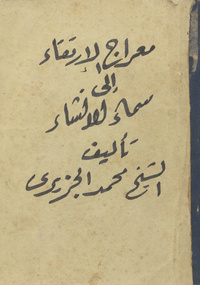 معراج الإرتقاء
إلى
سماء الإنشاء
تأليف
الشيخ محمد الجزيرى